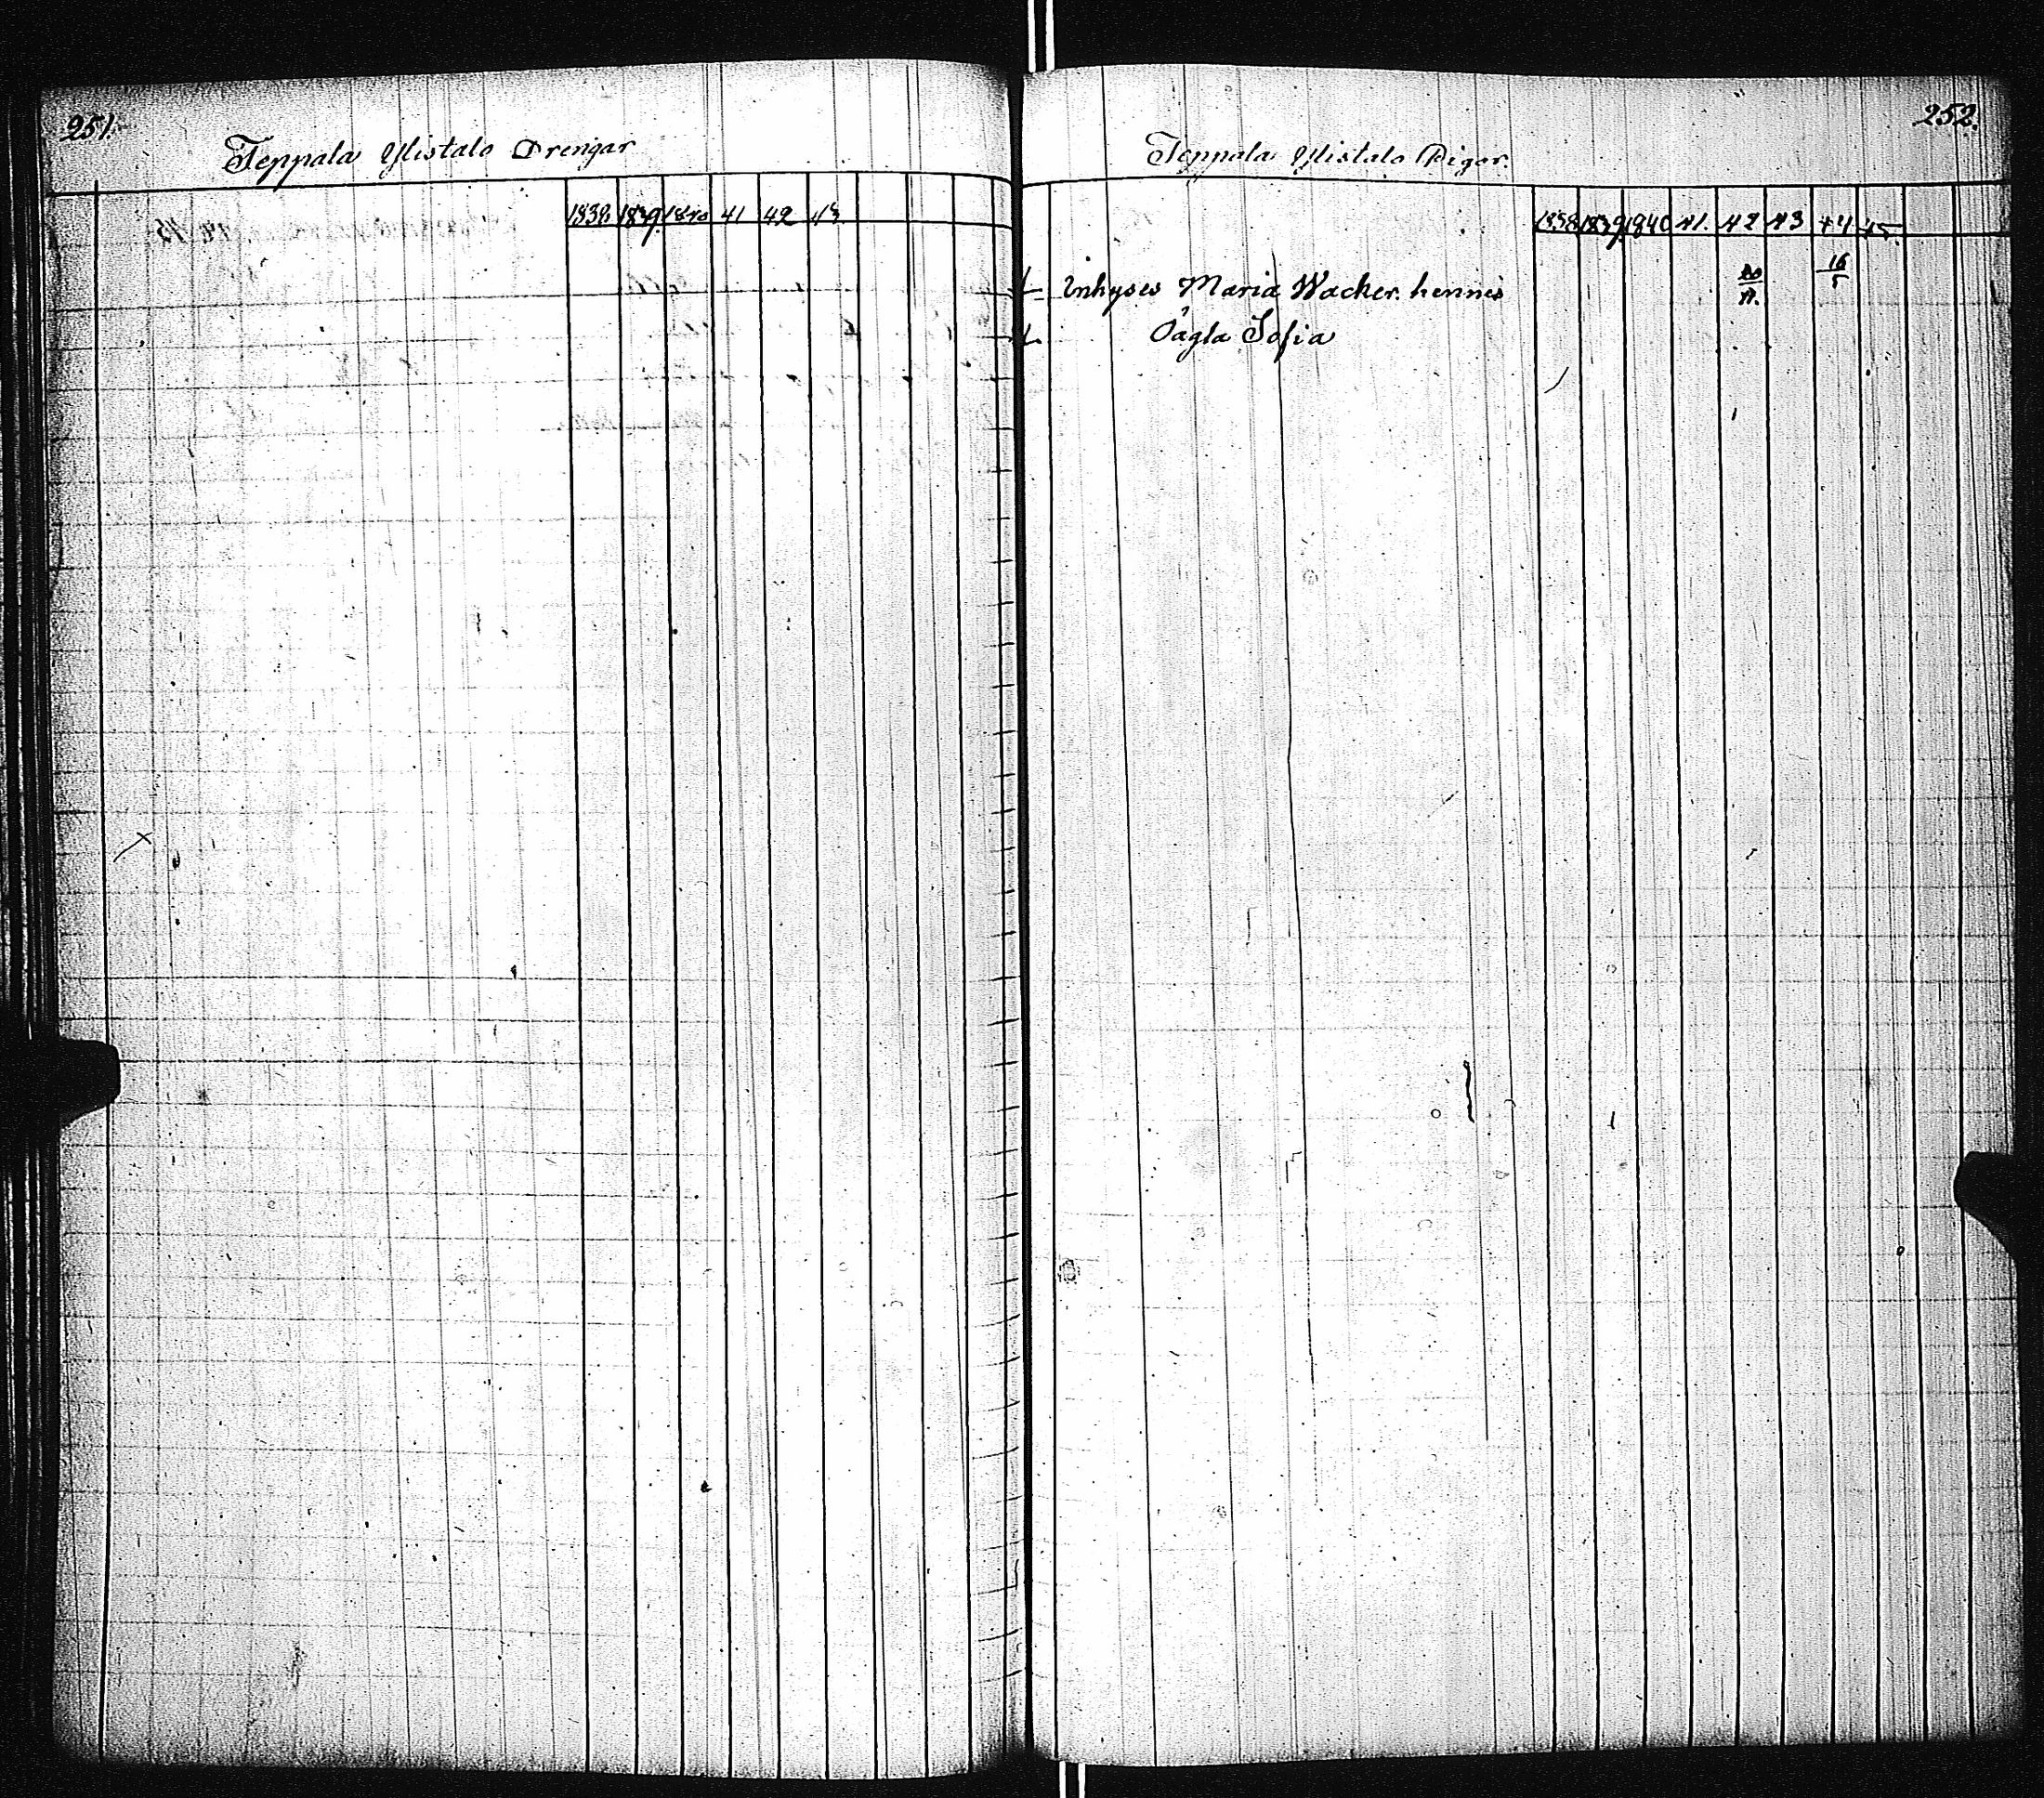 251.
Teppala Ylistalo Drengar
1838. 1839. 1840 41 42 43.
252.
Teppala Ylistalo Pigor.
1838 1839 1840 41. 42 43 44 45.
Inhyses Maria Wacker. hennes
16
Sofia